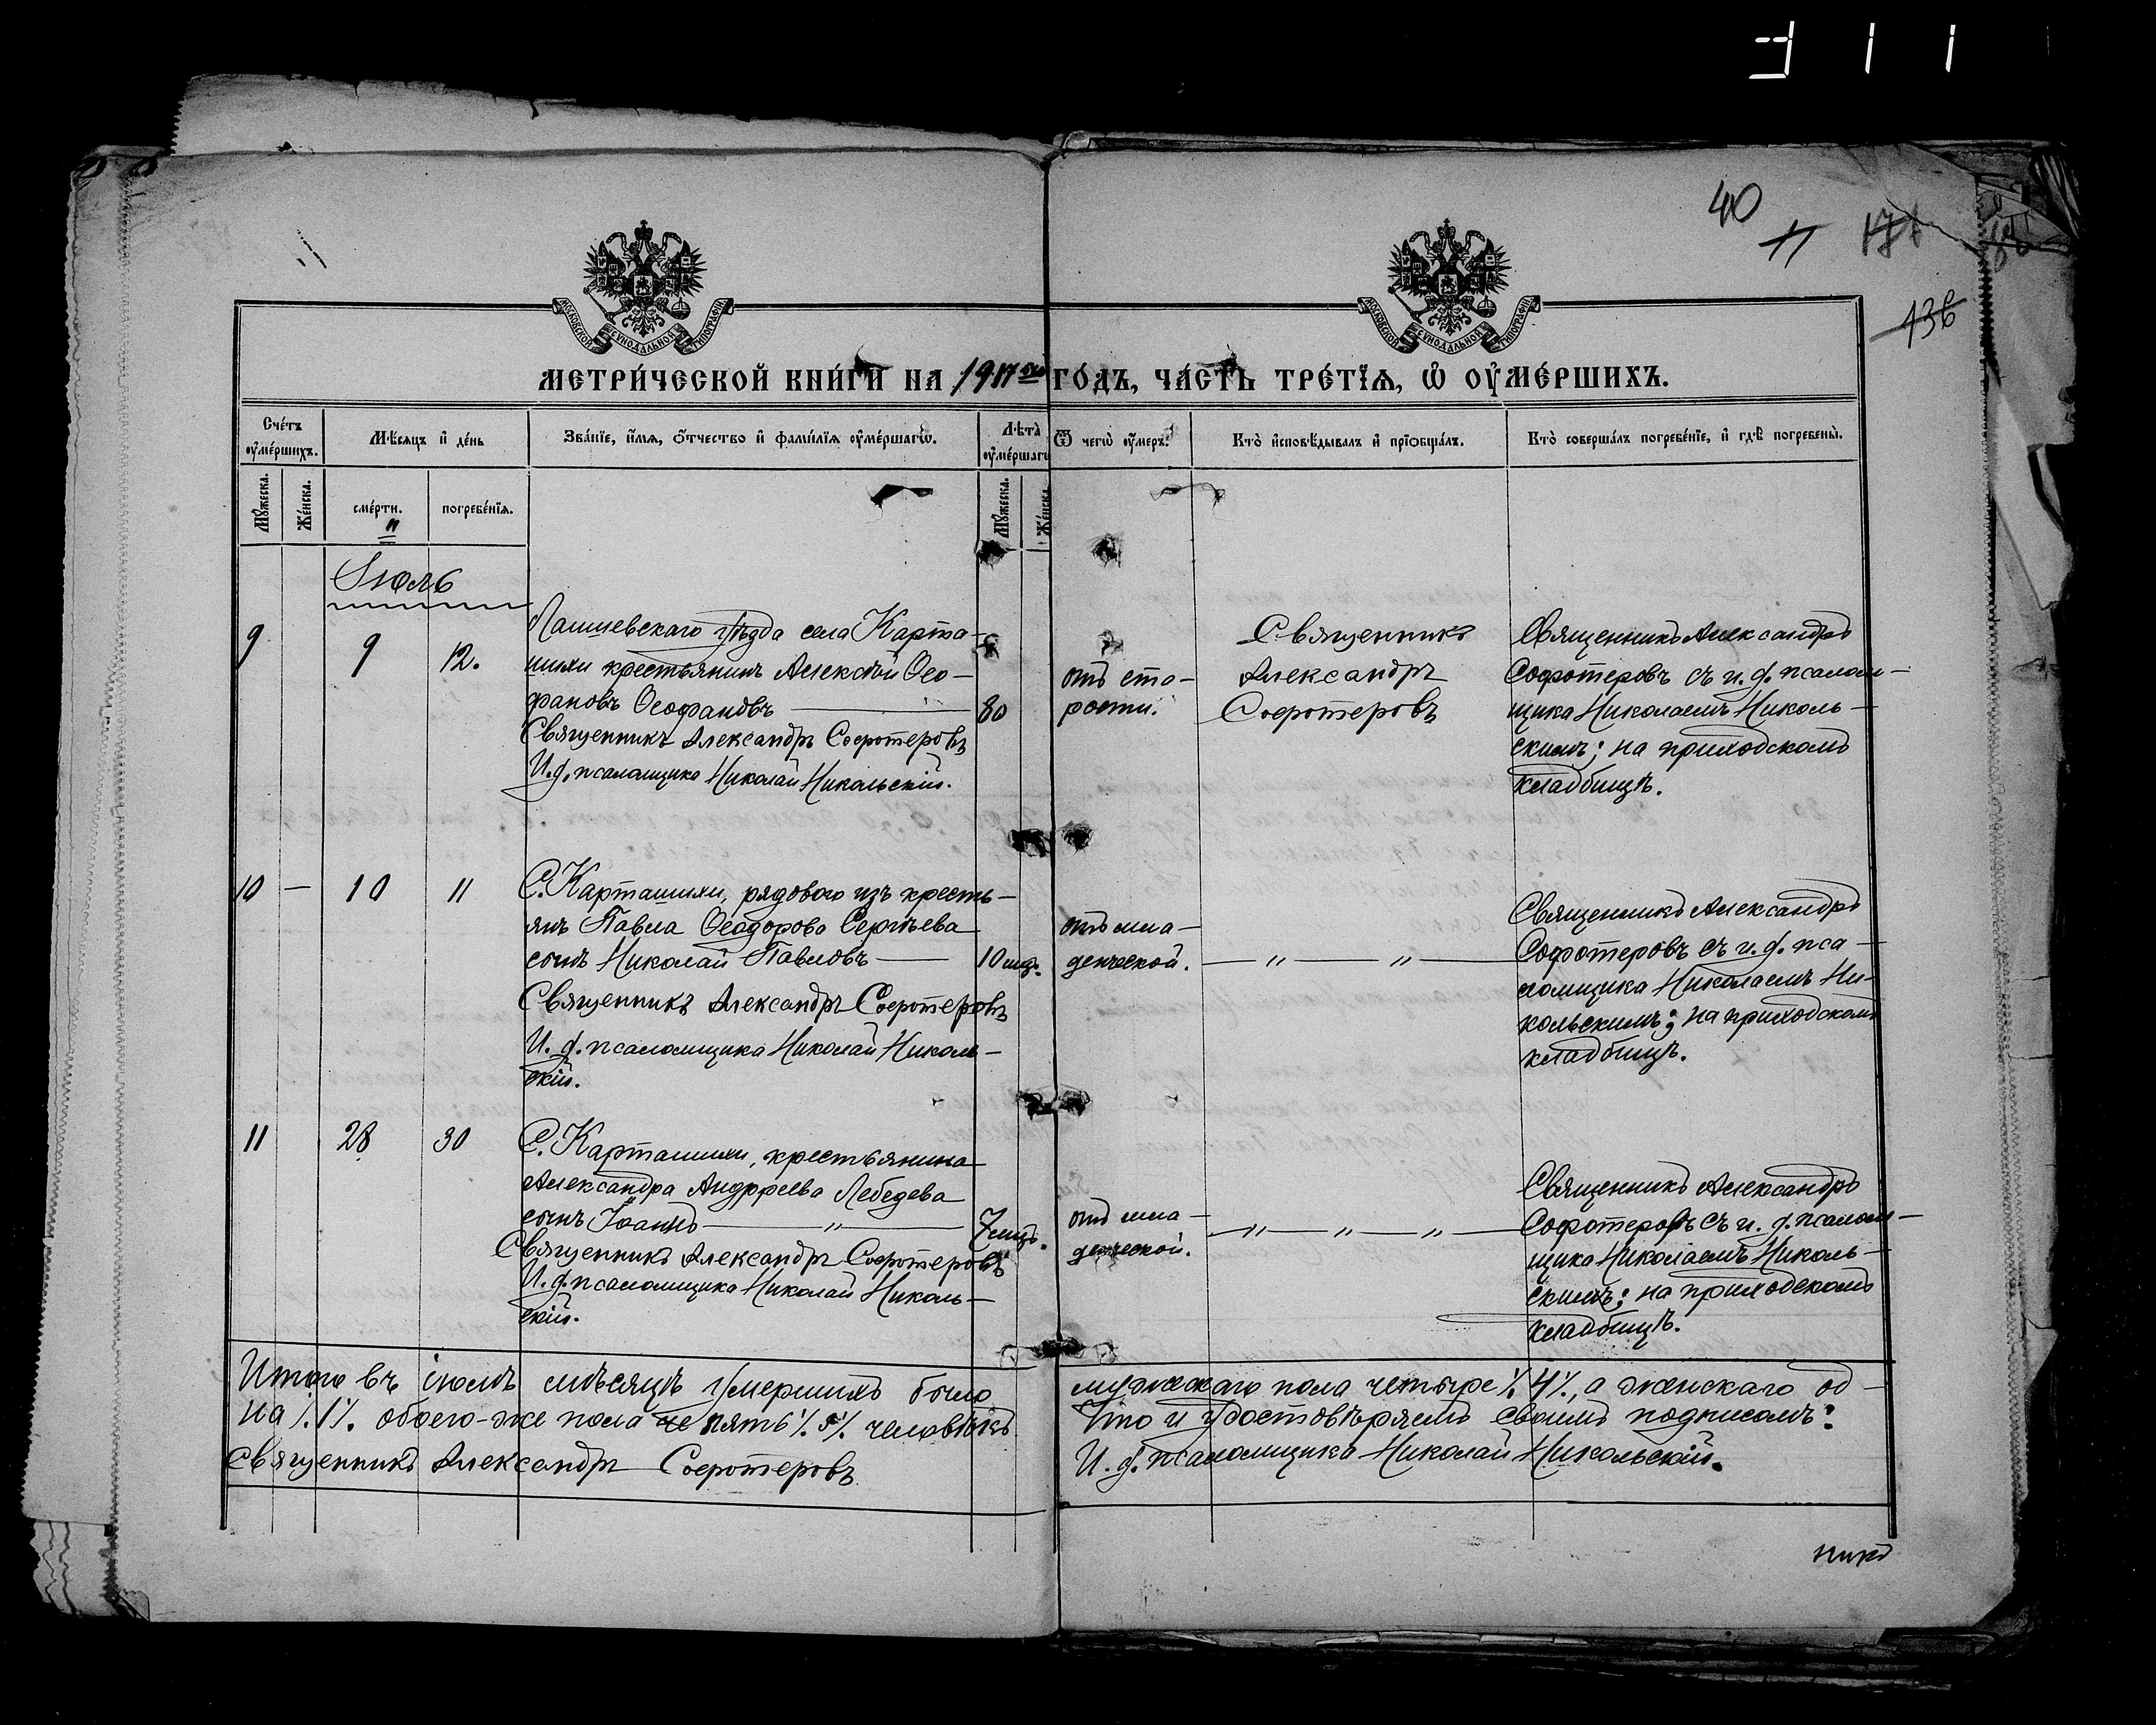 311
40
11
171
136
МОСКОВСКОЙ СѴНОДАЛЬНОЙ ТИПОГРАФІИ
МОСКОВСКОЙ СѴНОДАЛЬНОЙ ТИПОГРАФІИ
МЕТРИ́ЧЕСКОЙ КНИ́ГИ НА 1917 ГО́ДЪ, ЧА́СТЬ ТРЕ́ТІѦ, Ѡ҆ ОУ҆МЕ́РШИХЪ.
Сче́тъ оу҆ме́ршихъ.
Мѣ́сяцъ и҆ де́нь
Зва́ніе, и҆́мя, ѻ҆́тчество и҆ фами́лія оу҆ме́ршагѡ.
Лѣ́та оу҆ме́ршагѡ
Ѿ чегѡ̀ оу҆́меръ.
Кто̀ и҆сповѣ́дывалъ и҆ прїѡбща́лъ.
Кто̀ соверша́лъ погребе́ніе, и҆ гдѣ̀ погребены̀.
Мꙋ́жеска.
Же́нска.
сме́рти.
погребе́нія.
Мꙋ́жеска.
Же́нска
11
Іюль
9
9
12.
Лаишевскаго уѣзда села Карта-
шихи крестьянинъ Алексѣй Ѳео-
фановъ Ѳеофановъ
80
Священникъ Александръ Софотеровъ
И. ф. псаломщика Николай Никольскій.
отъ ста-
рости.
Священникъ
Александръ
Софотеровъ
Священникъ Александръ
Софотеровъ съ и. ф. псалом-
щика Николаемъ Николь-
скимъ; на приходскомъ
кладбищѣ.
10
—
10
11
С. Карташихи, рядового изъ кресть-
янъ Павла Ѳеодорова Сергѣева
сынъ Николай Павловъ
10 мцъ.
Священникъ Александръ Софотеровъ
И. ф. псаломщика Николай Николь-
скій.
отъ мла-
денческой.
— " — " —
Священникъ Александръ
Софотеровъ съ и. ф. пса-
ломщика Николаемъ Ни-
кольскимъ; на приходскомъ
кладбищѣ.
11
28
30
С. Карташихи, крестьянина
Александра Андреева Лебедева
сынъ Іоаннъ — " —
7 мцъ.
Священникъ Александръ Софотеровъ
И. ф. псаломщика Николай Николь-
скій.
отъ мла-
денческой.
— " — " — " —
Священникъ Александръ
Софотеровъ съ и. ф. псалом-
щика Николаемъ Николь-
скимъ; на приходскомъ
кладбищѣ.
Итого въ іюлѣ мѣсяцѣ умершихъ было мужескаго пола четыре /. 4 /., а женскаго од-
на /. 1 /. обоего-же пола че пять /. 5 /. человѣкъ Что и удостовѣряемъ своимъ подписомъ:
Священникъ Александръ Софотеровъ И. ф. псаломщика Николай Никольскій.
никъ